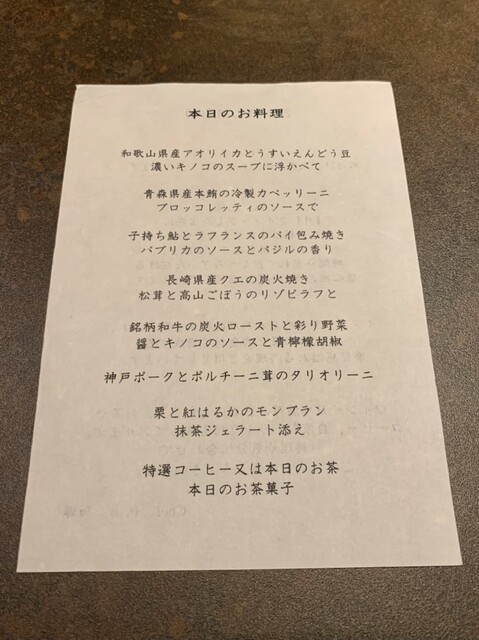 本日のお料理
和歌山県産アオリイカとうすいえんどう豆
濃いキノコのスープに浮かべて
青森県産本鮪の冷製カペッリーニ
ブロッコレッティのソースで
子持ち鮎とラフランスのパイ包み焼き
パプリカのソースとバジルの香り
長崎県産クエの炭火焼き
松茸と高山ごぼうのリゾピラフと
銘柄和牛の炭火ローストと彩り野菜
醤とキノコのソースと青檸檬胡椒
神戸ポークとポルチーニ茸のタリオリーニ
栗と紅はるかのモンブラン
抹茶ジェラート添え
特選コーヒー又は本日のお茶
本日のお茶菓子